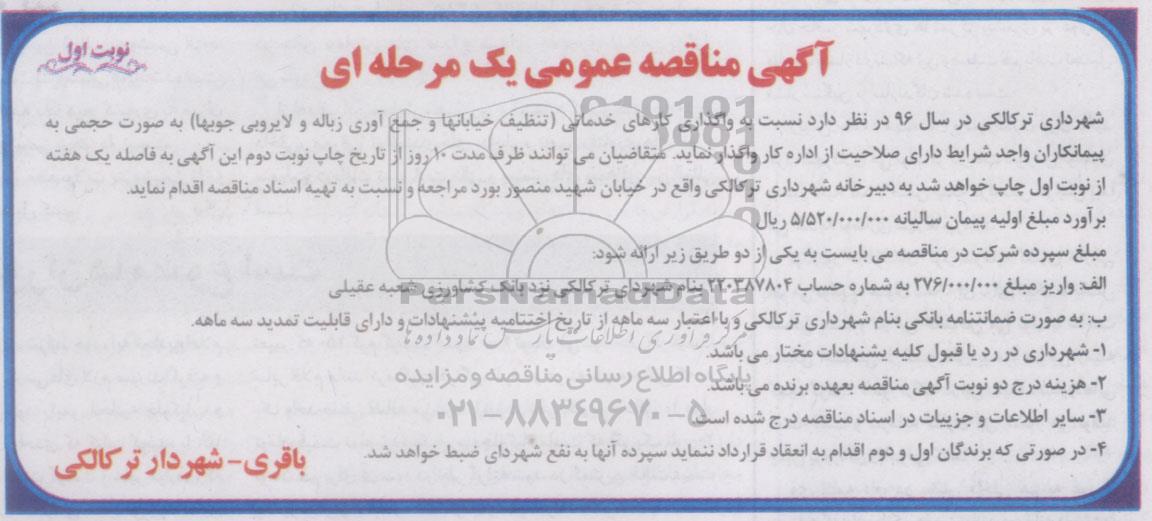 نوبت اول
آگهی مناقصه عمومی یک مرحله ای
شهرداری ترکالکی در سال ۹۶ در نظر دارد نسبت به واگذاری کارهای خدماتی (تنظیف خیابانها و جمع آوری زباله و لایروبی جویها) به صورت حجمی به
پیمانکاران واجد شرایط دارای صلاحیت از اداره کار واگذار نماید. متقاضیان می توانند ظرف مدت ۱۰ روز از تاریخ چاپ نوبت دوم این آگهی به فاصله یک هفته
از نوبت اول چاپ خواهد شد به دبیرخانه شهرداری ترکالکی واقع در خیابان شهید منصور بورد مراجعه و نسبت به تهیه اسناد مناقصه اقدام نماید.
برآورد مبلغ اولیه پیمان سالیانه ۵/۵۲۰/۰۰۰/۰۰۰ ریال
مبلغ سپرده شرکت در مناقصه می بایست به یکی از دو طریق زیر ارائه شود:
الف: واریز مبلغ ۲۷۶/۰۰۰/۰۰۰ به شماره حساب ۲۲۰۳۸۷۸۰۴ بنام شهردای ترکالکی نزد بانک کشاورزی شعبه عقیلی
ب: به صورت ضمانتنامه بانکی بنام شهرداری ترکالکی و با اعتبار سه ماهه از تاریخ اختتامیه پیشنهادات و دارای قابلیت تمدید سه ماهه.
۱- شهرداری در رد یا قبول کلیه پشنهادات مختار می باشد.
۲- هزینه درج دو نوبت آگهی مناقصه بعهده برنده می باشد.
۳- سایر اطلاعات و جزییات در اسناد مناقصه درج شده است
۴- در صورتی که برندگان اول و دوم اقدام به انعقاد قرارداد ننماید سپرده آنها به نفع شهردای ضبط خواهد شد.
باقری - شهردار ترکالکی
ParsNamadData
مرکز فرآوری اطلاعات پارس نماد داده ها
پایگاه اطلاع رسانی مناقصه و مزایده
۰۲۱-۸۸۳۴۹۶۷۰-۵